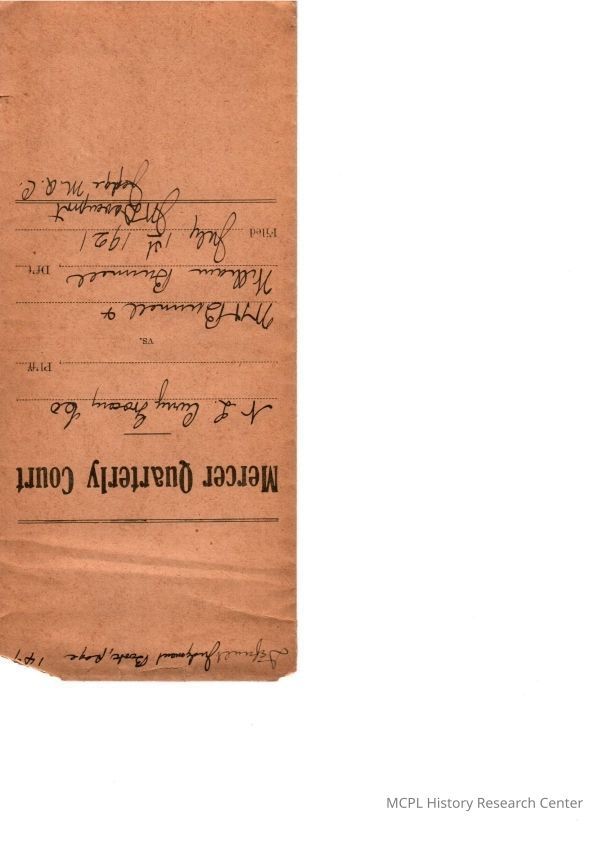 Judgment Book, page 147
Mercer Quarterly Court
N. L. Curry Grocery Co
Pl'ff.
vs.
Bunnell &
William Bunnell
Df't.
Filed July 1st 1921
Davenport
Judge M. Q. C.
MCPL History Research Center